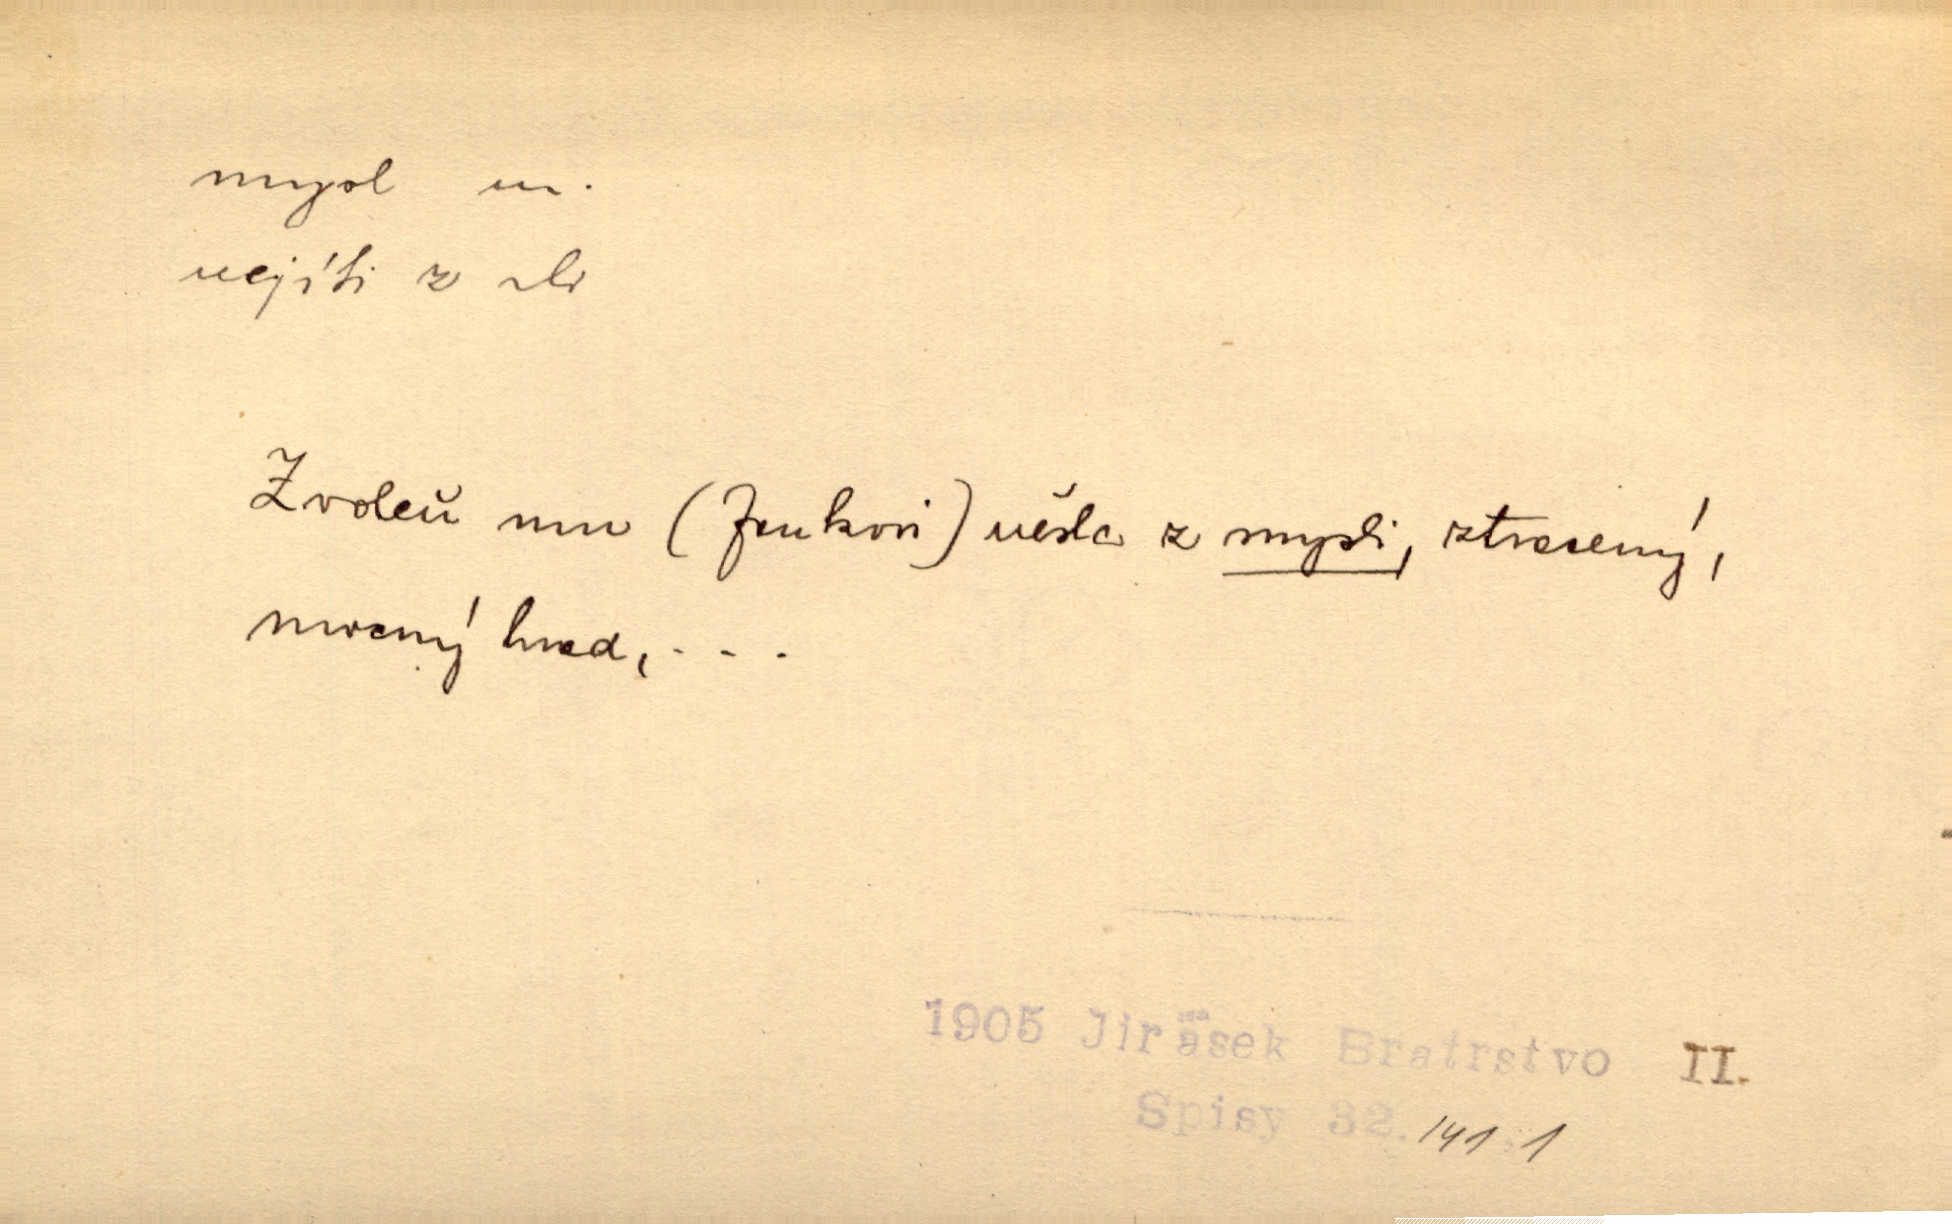 mysl m.
nejíti z ~li
Zvoleň mu (Jenkovi) nešla z mysli, ztracený,
mocný hrad, . - - .
1905 Jirásek Bratrstvo II.
Spisy 32. 141.1